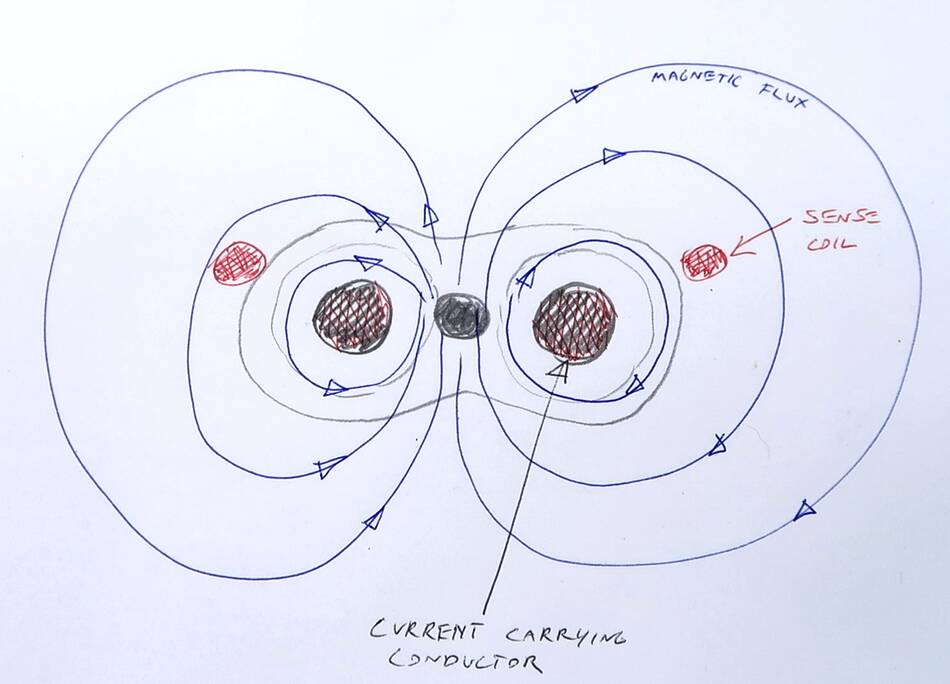 MAGNETIC FLUX
SENSE
COIL
CURRENT CARRYING
CONDUCTOR